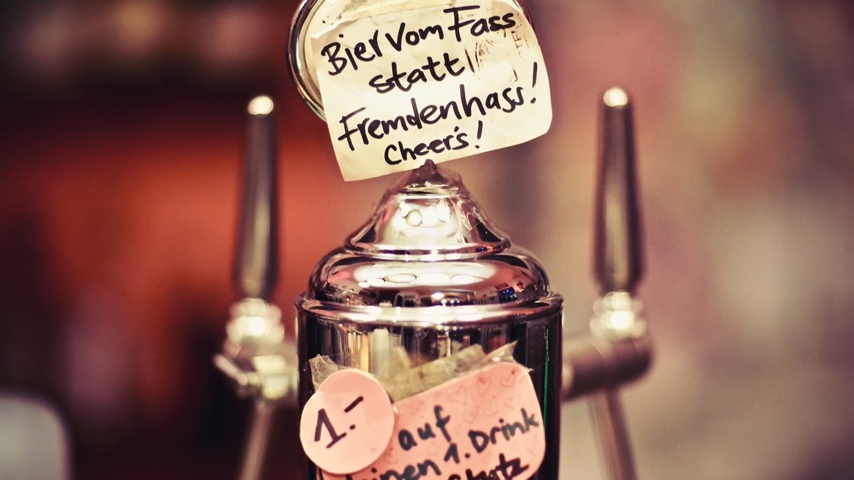 Bier vom Fass
statt
Fremdenhass!
Cheer's!
1.-
auf
1. Drink